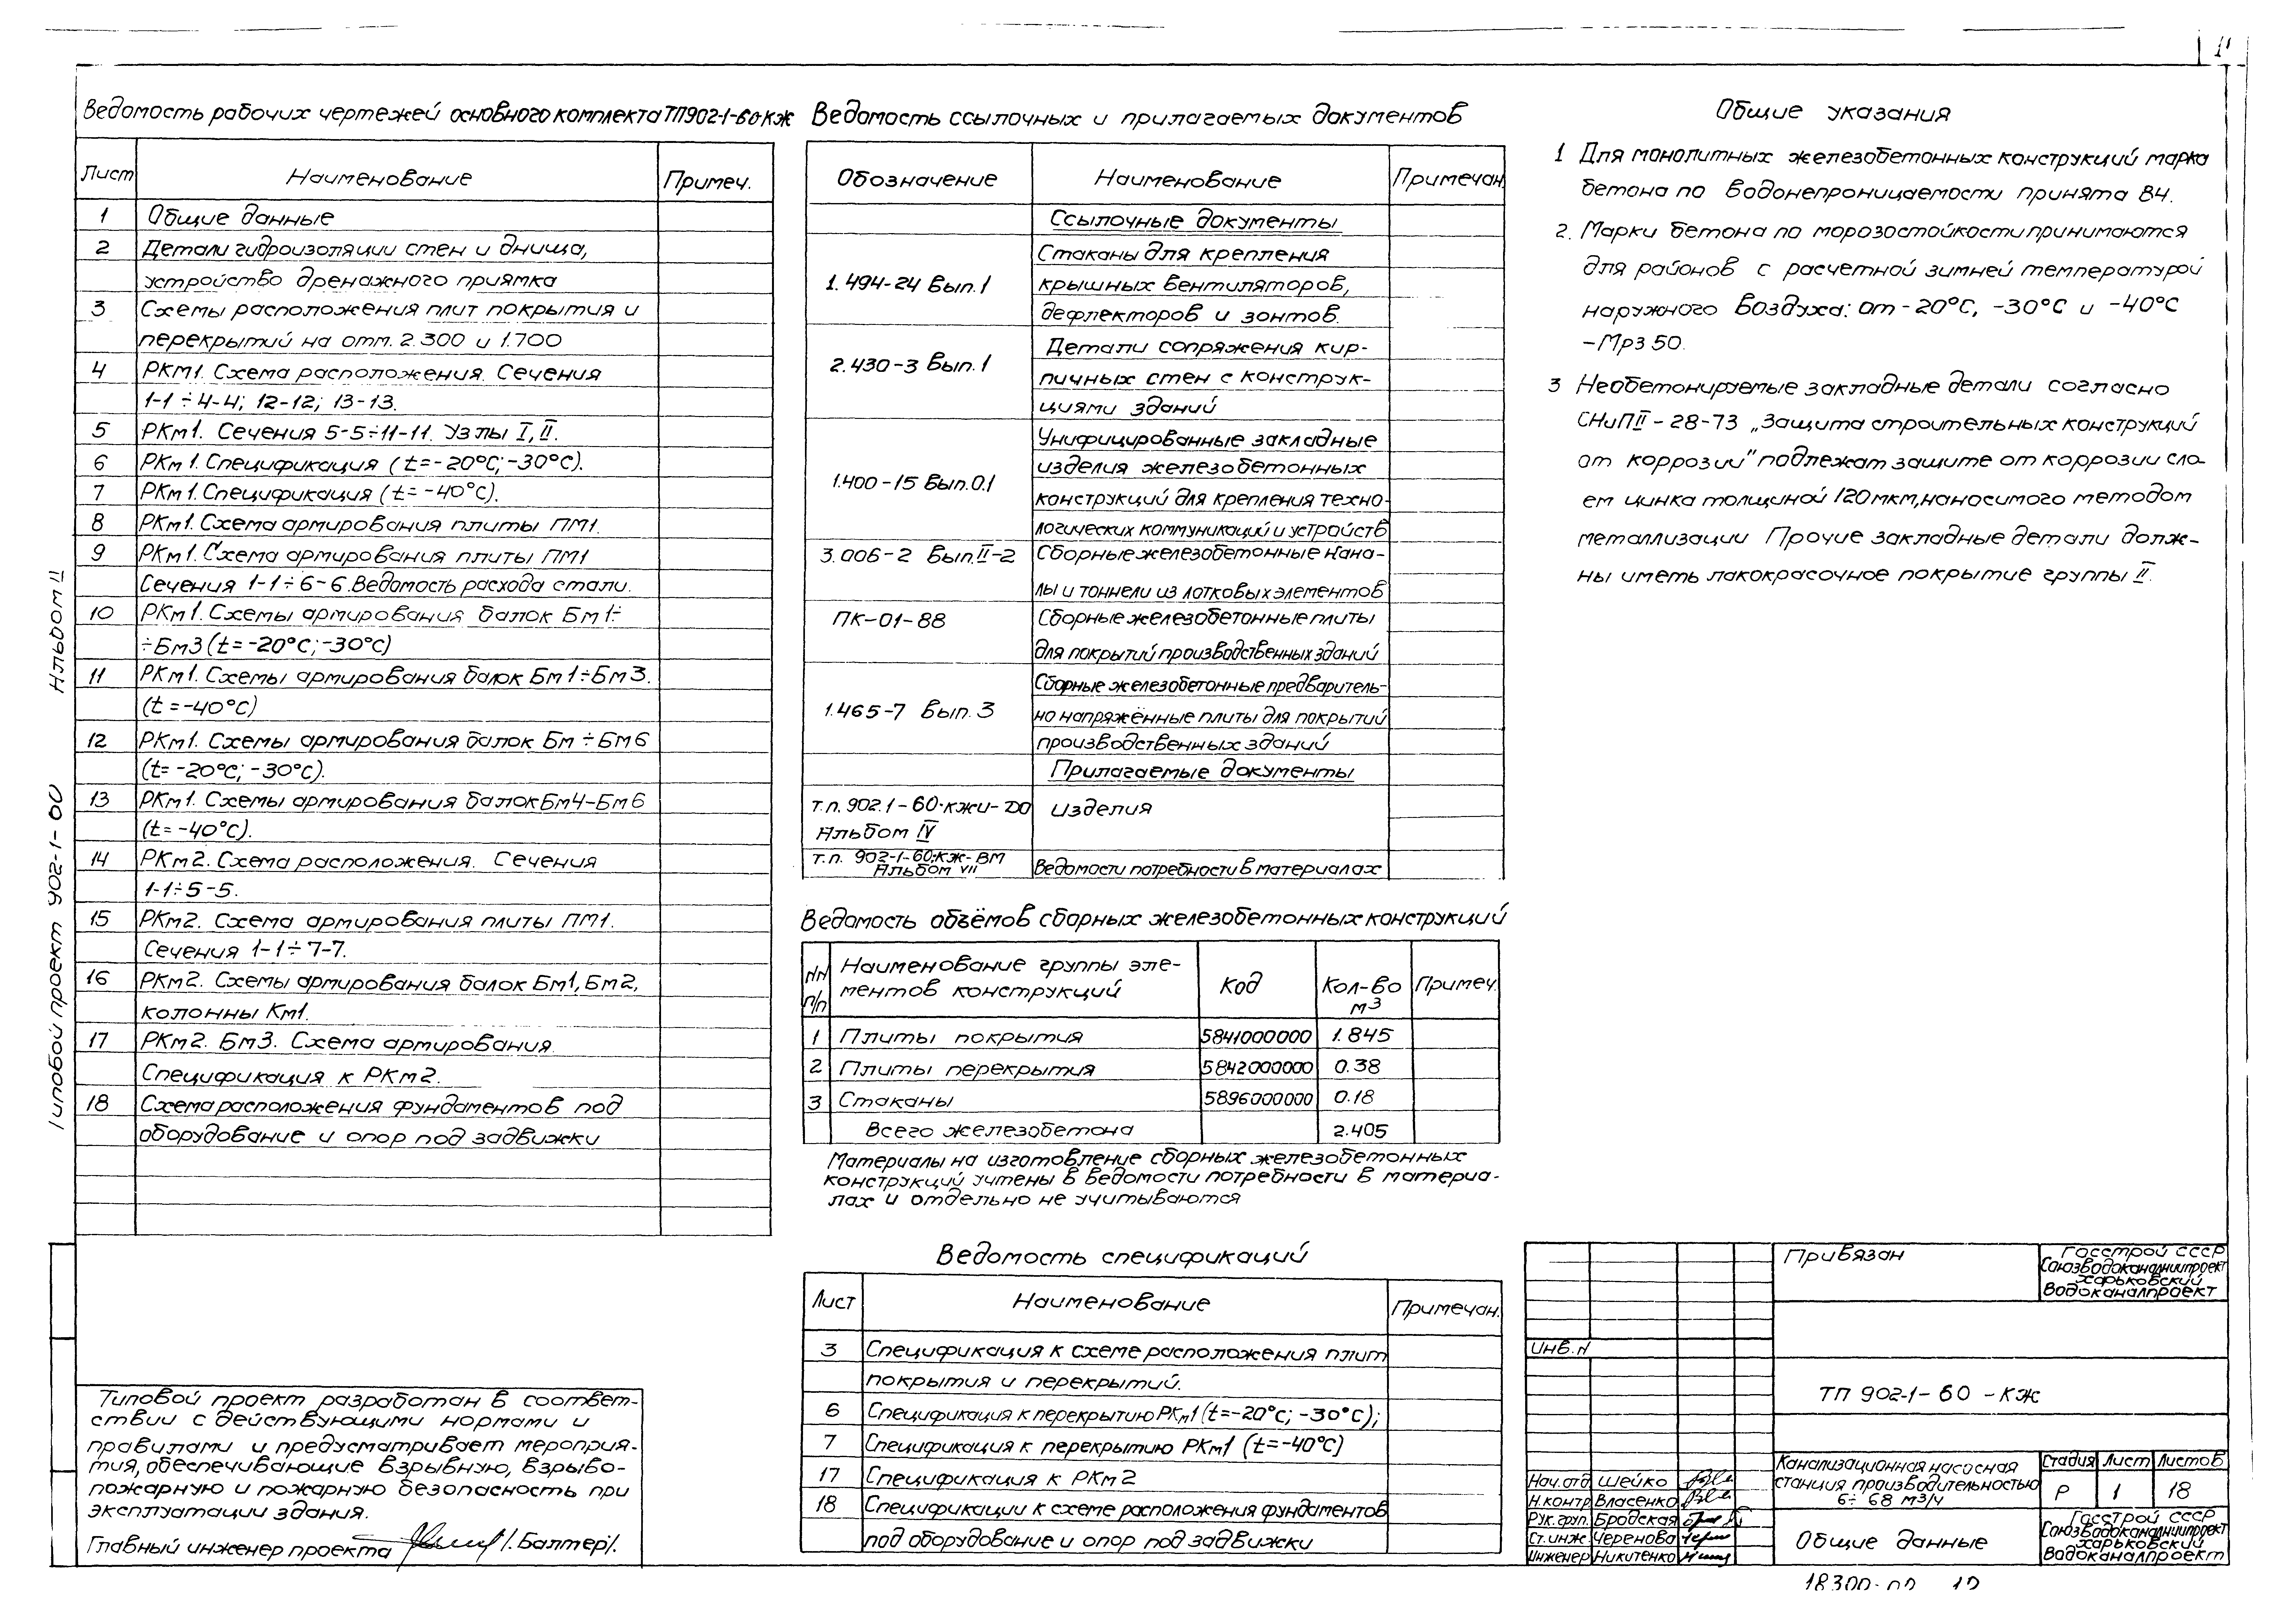 Ведомость рабочих чертежей основного комплекта ТП902-1-60-КЖ
Лист Наименование Примеч.
1 Общие данные
2 Детали гидроизоляции стен и днища,
устройство дренажного приямка
3 Схемы расположения плит покрытия и
перекрытий на отм. 2.300 и 1.700
4 РКм1. Схема расположения. Сечения
1-1÷4-4; 12-12; 13-13.
5 РКм1. Сечения 5-5÷11-11. Узлы I, II.
6 РКм1. Спецификация (t=-20°C; -30°C).
7 РКм1. Спецификация (t= -40°C).
8 РКм1. Схема армирования плиты ПМ1.
9 РКм1. Схема армирования плиты ПМ1
Сечения 1-1÷6-6. Ведомость расхода стали.
10 РКм1. Схемы армирования балок Бм1÷
÷Бм3 (t=-20°C; -30°C)
11 РКм1. Схемы армирования балок Бм1÷Бм3.
(t=-40°C)
12 РКм1. Схемы армирования балок Бм÷Бм6
(t= -20°C; -30°C).
13 РКм1. Схемы армирования балок Бм4-Бм6
(t= -40°C).
14 РКм2. Схема расположения. Сечения
1-1÷5-5.
15 РКм2. Схема армирования плиты ПМ1.
Сечения 1-1÷7-7.
16 РКм2. Схемы армирования балок Бм1, Бм2,
колонны Км1.
17 РКм2. Бм3. Схема армирования.
Спецификация к РКм2.
18 Схема расположения фундаментов под
оборудование и опор под задвижки
Альбом II
Типовой проект 902-1-60
Типовой проект разработан в соответ-
ствии с действующими нормами и
правилами и предусматривает мероприя-
тия, обеспечивающие взрывную, взрыво-
пожарную и пожарную безопасность при
эксплуатации здания.
Главный инженер проекта /. Балтер/.
Ведомость ссылочных и прилагаемых документов
Обозначение Наименование Примечан.
Ссылочные документы
1.494-24 Вып.1 Стаканы для крепления
крышных вентиляторов,
дефлекторов и зонтов.
2.430-3 Вып.1 Детали сопряжения кир-
пичных стен с конструк-
циями зданий
1.400-15 Вып.0.1 Унифицированные закладные
изделия железобетонных
конструкций для крепления техно-
логических коммуникаций и устройств
3.006-2 Вып.II-2 Сборные железобетонные кана-
лы и тоннели из лотковых элементов
ПК-01-88 Сборные железобетонные плиты
для покрытий производственных зданий
1.465-7 Вып. 3 Сборные железобетонные предваритель-
но напряженные плиты для покрытий
производственных зданий
Прилагаемые документы
т.п. 902.1-60-кжи-ДО Изделия
Альбом IV
т.п. 902-1-60-КЖ-ВМ Ведомости потребности в материалах
Альбом VII
Ведомость объёмов сборных железобетонных конструкций
NN п/п Наименование группы эле-
ментов конструкций Код Кол-во м3 Примеч.
1 Плиты покрытия 5841000000 1.845
2 Плиты перекрытия 5842000000 0.38
3 Стаканы 5896000000 0.18
Всего железобетона 2.405
Материалы на изготовление сборных железобетонных
конструкций учтены в ведомости потребности в материа-
лах и отдельно не учитываются
Ведомость спецификаций
Лист Наименование Примечан.
3 Спецификация к схеме расположения плит
покрытия и перекрытий.
6 Спецификация к перекрытию РКм1 (t=-20°C; -30°C);
7 Спецификация к перекрытию РКм1 (t=-40°C)
17 Спецификация к РКм2
18 Спецификации к схеме расположения фундаментов
под оборудование и опор под задвижки
Общие указания
1 Для монолитных железобетонных конструкций марка
бетона по водонепроницаемости принята В4.
2. Марки бетона по морозостойкости принимаются
для районов с расчетной зимней температурой
наружного воздуха: от -20°C, -30°C и -40°C
-Мрз 50.
3 Необетонируемые закладные детали согласно
СНиПII-28-73 „Защита строительных конструкций
от коррозии" подлежат защите от коррозии сло-
ем цинка толщиной 120мкм, наносимого методом
металлизации Прочие закладные детали долж-
ны иметь лакокрасочное покрытие группы II.
Привязан
Госстрой СССР
Союзводоканалниипроект
Харьковский
Водоканалпроект
Инв. N
ТП 902-1-60-КЖ
Нач.отд Шейко
Н.контр Власенко
Рук.груп. Бродская
Ст.инж. Черенова
Инженер Никитенко
Канализационная насосная
станция производительностью
6÷68 м3/ч
Стадия Лист Листов
Р 1 18
Общие данные
Госстрой СССР
Союзводоканалниипроект
Харьковский
Водоканалпроект